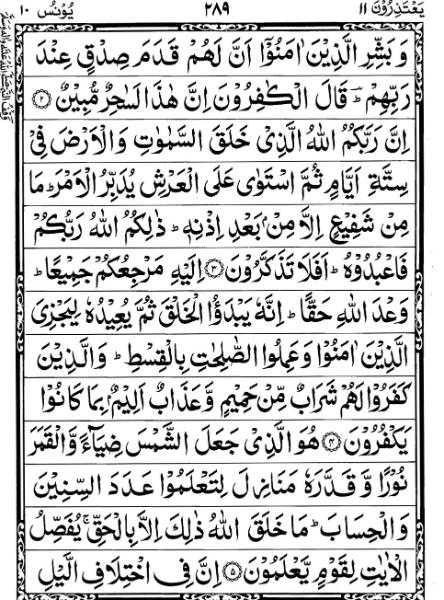 یَعْتَذِرُوْنَ ۱۱ ۲۸۹ یُوْنُس ۱۰
وَ بَشِّرِ الَّذِیْنَ اٰمَنُوْۤا اَنَّ لَهُمْ قَدَمَ صِدْقٍ عِنْدَ
رَبِّهِمْ ؕ قَالَ الْكٰفِرُوْنَ اِنَّ هٰذَا لَسٰحِرٌ مُّبِیْنٌ ۝۲
اِنَّ رَبَّكُمُ اللّٰهُ الَّذِیْ خَلَقَ السَّمٰوٰتِ وَ الْاَرْضَ فِیْ
سِتَّةِ اَیَّامٍ ثُمَّ اسْتَوٰی عَلَی الْعَرْشِ یُدَبِّرُ الْاَمْرَ ؕ مَا
مِنْ شَفِیْعٍ اِلَّا مِنْۢ بَعْدِ اِذْنِهٖ ؕ ذٰلِكُمُ اللّٰهُ رَبُّكُمْ
فَاعْبُدُوْهُ ؕ اَفَلَا تَذَكَّرُوْنَ ۝۳ اِلَیْهِ مَرْجِعُكُمْ جَمِیْعًا ؕ
وَعْدَ اللّٰهِ حَقًّا ؕ اِنَّهٗ یَبْدَؤُا الْخَلْقَ ثُمَّ یُعِیْدُهٗ لِیَجْزِیَ
الَّذِیْنَ اٰمَنُوْا وَ عَمِلُوا الصّٰلِحٰتِ بِالْقِسْطِ ؕ وَ الَّذِیْنَ
كَفَرُوْا لَهُمْ شَرَابٌ مِّنْ حَمِیْمٍ وَّ عَذَابٌ اَلِیْمٌۢ بِمَا كَانُوْا
یَكْفُرُوْنَ ۝۴ هُوَ الَّذِیْ جَعَلَ الشَّمْسَ ضِیَآءً وَّ الْقَمَرَ
نُوْرًا وَّ قَدَّرَهٗ مَنَازِلَ لِتَعْلَمُوْا عَدَدَ السِّنِیْنَ
وَ الْحِسَابَ ؕ مَا خَلَقَ اللّٰهُ ذٰلِكَ اِلَّا بِالْحَقِّ ۚ یُفَصِّلُ
الْاٰیٰتِ لِقَوْمٍ یَّعْلَمُوْنَ ۝۵ اِنَّ فِی اخْتِلَافِ الَّیْلِ